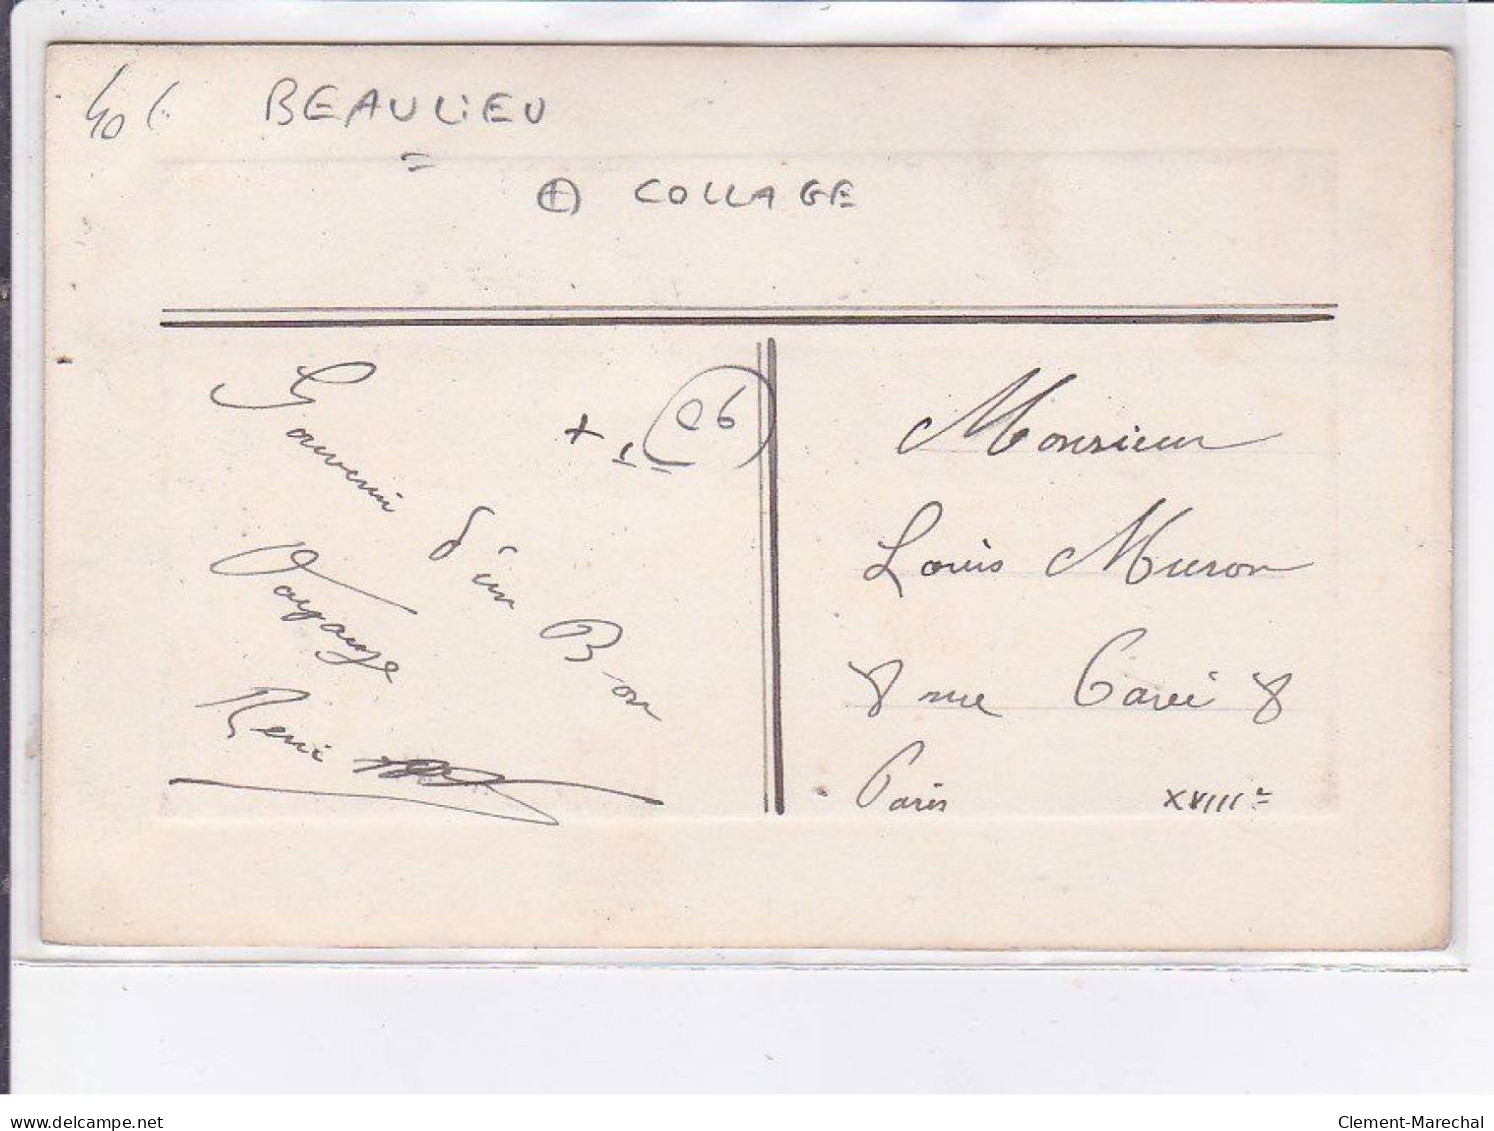 40 €
BEAULIEU
+ COLLAGE
Souvenir
d'un Bon
Voyage
René
+
06
Monsieur
Louis Muron
8 rue Cavé 8
Paris XVIIIe
delcampe.net
Clement-Marechal